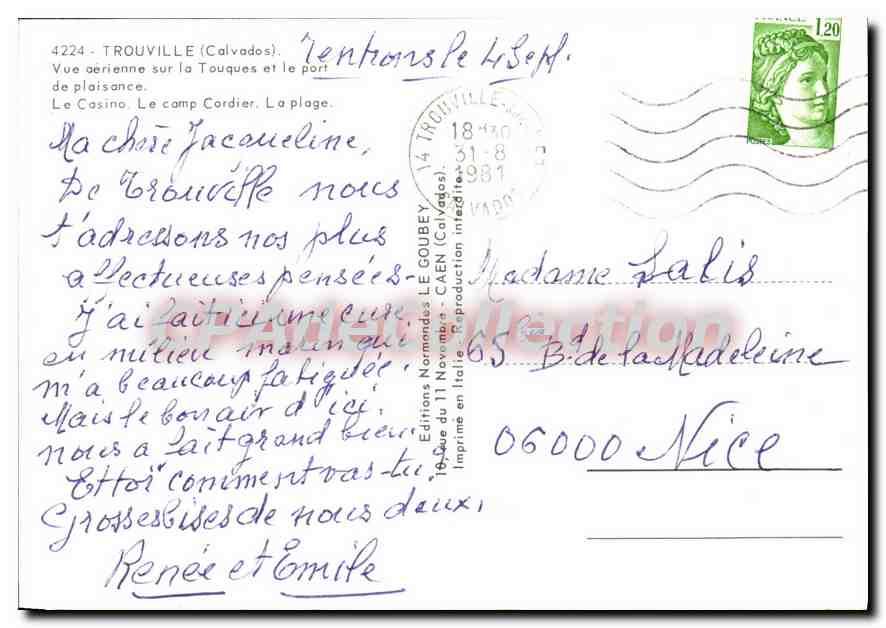 4224 - TROUVILLE (Calvados).
Vue aérienne sur la Touques et le port
de plaisance.
Le Casino. Le camp Cordier. La plage.
rentrons le 4 Sept.
FRANCE 1,20
POSTES
14 TROUVILLE
18H30
31-8
1981
CALVADOS
Ma chère Jacqueline,
De Trouville nous
t'adressons nos plus
affectueuses pensées -
J'ai fait ici une cure
en milieu marin qui
m'a beaucoup fatiguée.
Mais le bon air d'ici
nous a fait grand bien.
Et toi comment vas-tu,
Grosses bises de nous deux,
Renée et Emile
Editions Normandes LE GOUBEY
rue du 11 Novembre - CAEN (Calvados).
Imprimé en Italie - Reproduction interdite.
Madame Lalis
65 bis Bd de la Madeleine
06000 Nice
PAdeCollection